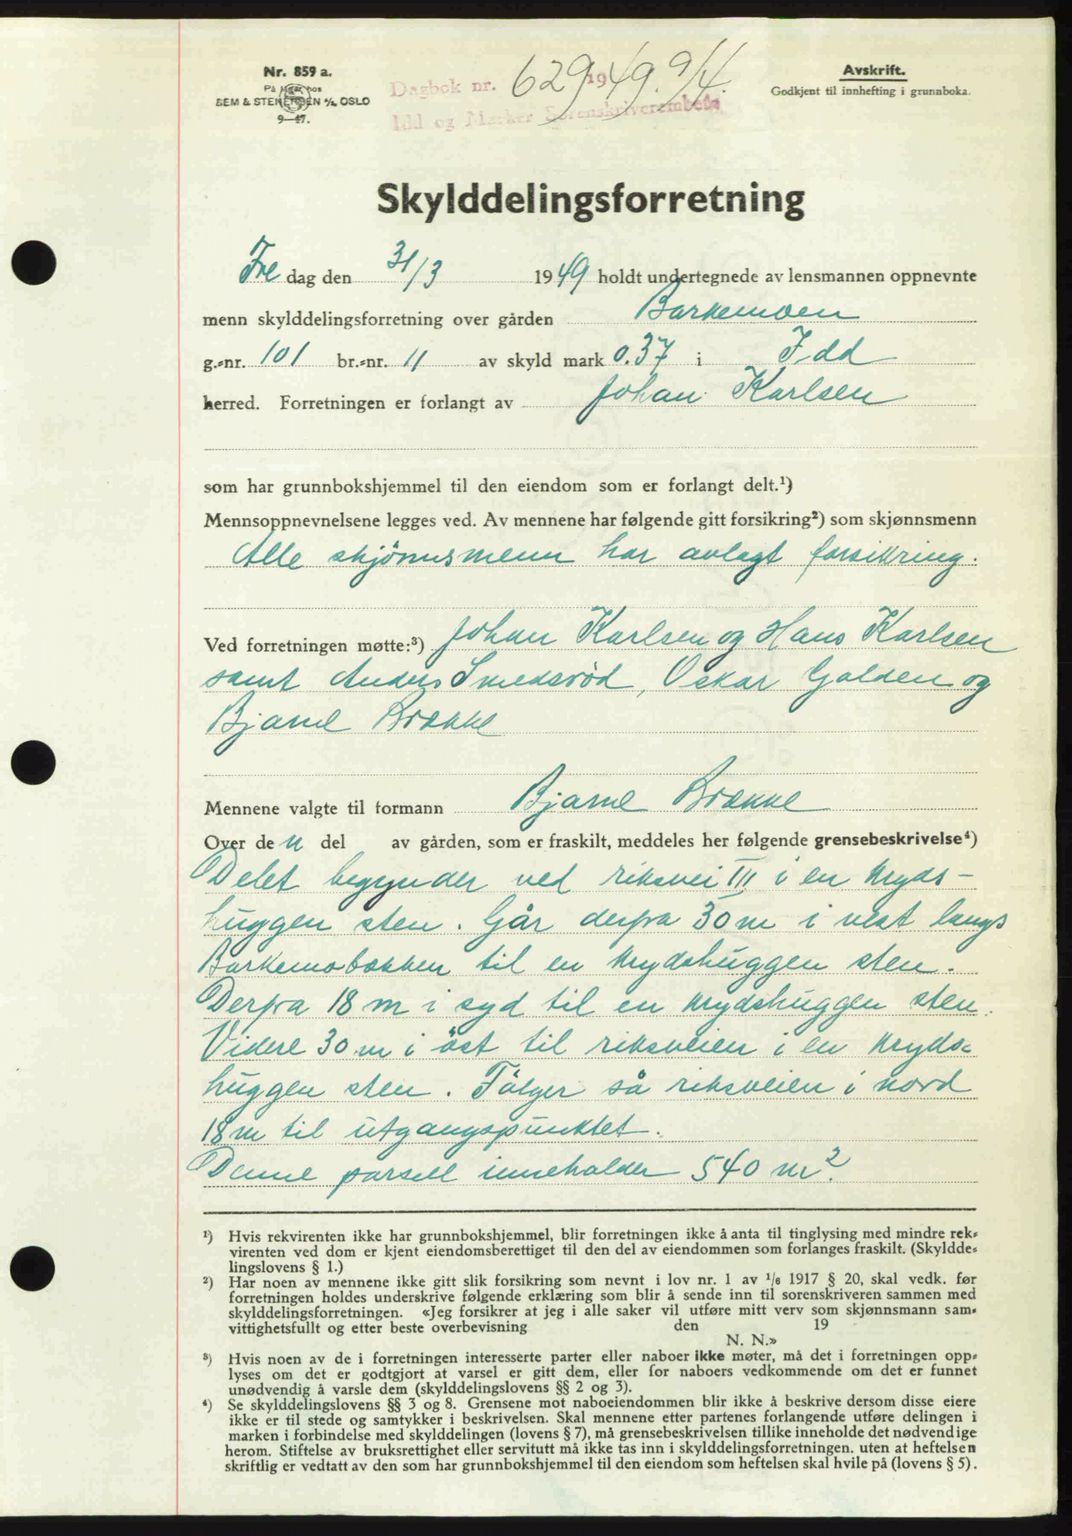 Nr. 859 a.
På lager hos
SEM & STENERSEN A/S, OSLO
9—47.
Dagbok nr. 629 1949. 9/4.
Idd og Marker Sorenskriverembete
Avskrift.
Godkjent til innhefting i grunnboka.
Skylddelingsforretning
Fre dag den 31/3 1949 holdt undertegnede av lensmannen oppnevnte
menn skylddelingsforretning over gården Barkemoen
g.-nr. 101 br.-nr. 11 av skyld mark 0.37 i Idd
herred. Forretningen er forlangt av Johan Karlsen
som har grunnbokshjemmel til den eiendom som er forlangt delt.¹)
Mennsoppnevnelsene legges ved. Av mennene har følgende gitt forsikring²) som skjønnsmenn
Alle skjönnsmenn har avlagt forsikring.
Ved forretningen møtte:³) Johan Karlsen og Hans Karlsen
samt Anders Smedsrød, Oskar Golden og
Bjarne Brække
Mennene valgte til formann Bjarne Brække
Over de n del av gården, som er fraskilt, meddeles her følgende grensebeskrivelse⁴)
Delet begynder ved riksvei III i en kryds-
huggen sten. Går derfra 30 m i vest langs
Barkemobækken til en krydshuggen sten.
Derfra 18 m i syd til en krydshuggen sten.
Videre 30 m i öst til riksveien i en kryds-
huggen sten. Fölger så riksveien i nord
18 m til utgangspunktet.
Denne parsell inneholder 540 m².
¹) Hvis rekvirenten ikke har grunnbokshjemmel, blir forretningen ikke å anta til tinglysing med mindre rek-
virenten ved dom er kjent eiendomsberettiget til den del av eiendommen som forlanges fraskilt. (Skyldde-
lingslovens § 1.)
²) Har noen av mennene ikke gitt slik forsikring som nevnt i lov nr. 1 av ¹/₆ 1917 § 20, skal vedk. før
forretningen holdes underskrive følgende erklæring som blir å sende inn til sorenskriveren sammen med
skylddelingsforretningen. «Jeg forsikrer at jeg i alle saker vil utføre mitt verv som skjønnsmann sam-
vittighetsfullt og etter beste overbevisning den 19
N. N.»
³) Hvis noen av de i forretningen interesserte parter eller naboer ikke møter, må det i forretningen opp-
lyses om det er godtgjort at varsel er gitt dem, eller for naboers vedkommende om det er funnet
unødvendig å varsle dem (skylddelingslovens §§ 2 og 3).
⁴) Se skylddelingslovens §§ 3 og 8. Grensene mot naboeiendommen blir ikke å beskrive dersom disse eiere
ikke er til stede og samtykker i beskrivelsen. Skal mennene etter partenes forlangende utføre delingen i
marken i forbindelse med skylddelingen (lovens § 7), må grensebeskrivelsen tillike inneholde det nødvendige
herom. Stiftelse av bruksrettighet eller servitutt må ikke tas inn i skylddelingsforretningen, uten at heftelsen
skriftlig er vedtatt av den som har grunnbokshjemmel til den eiendom som heftelsen skal hvile på (lovens § 5).